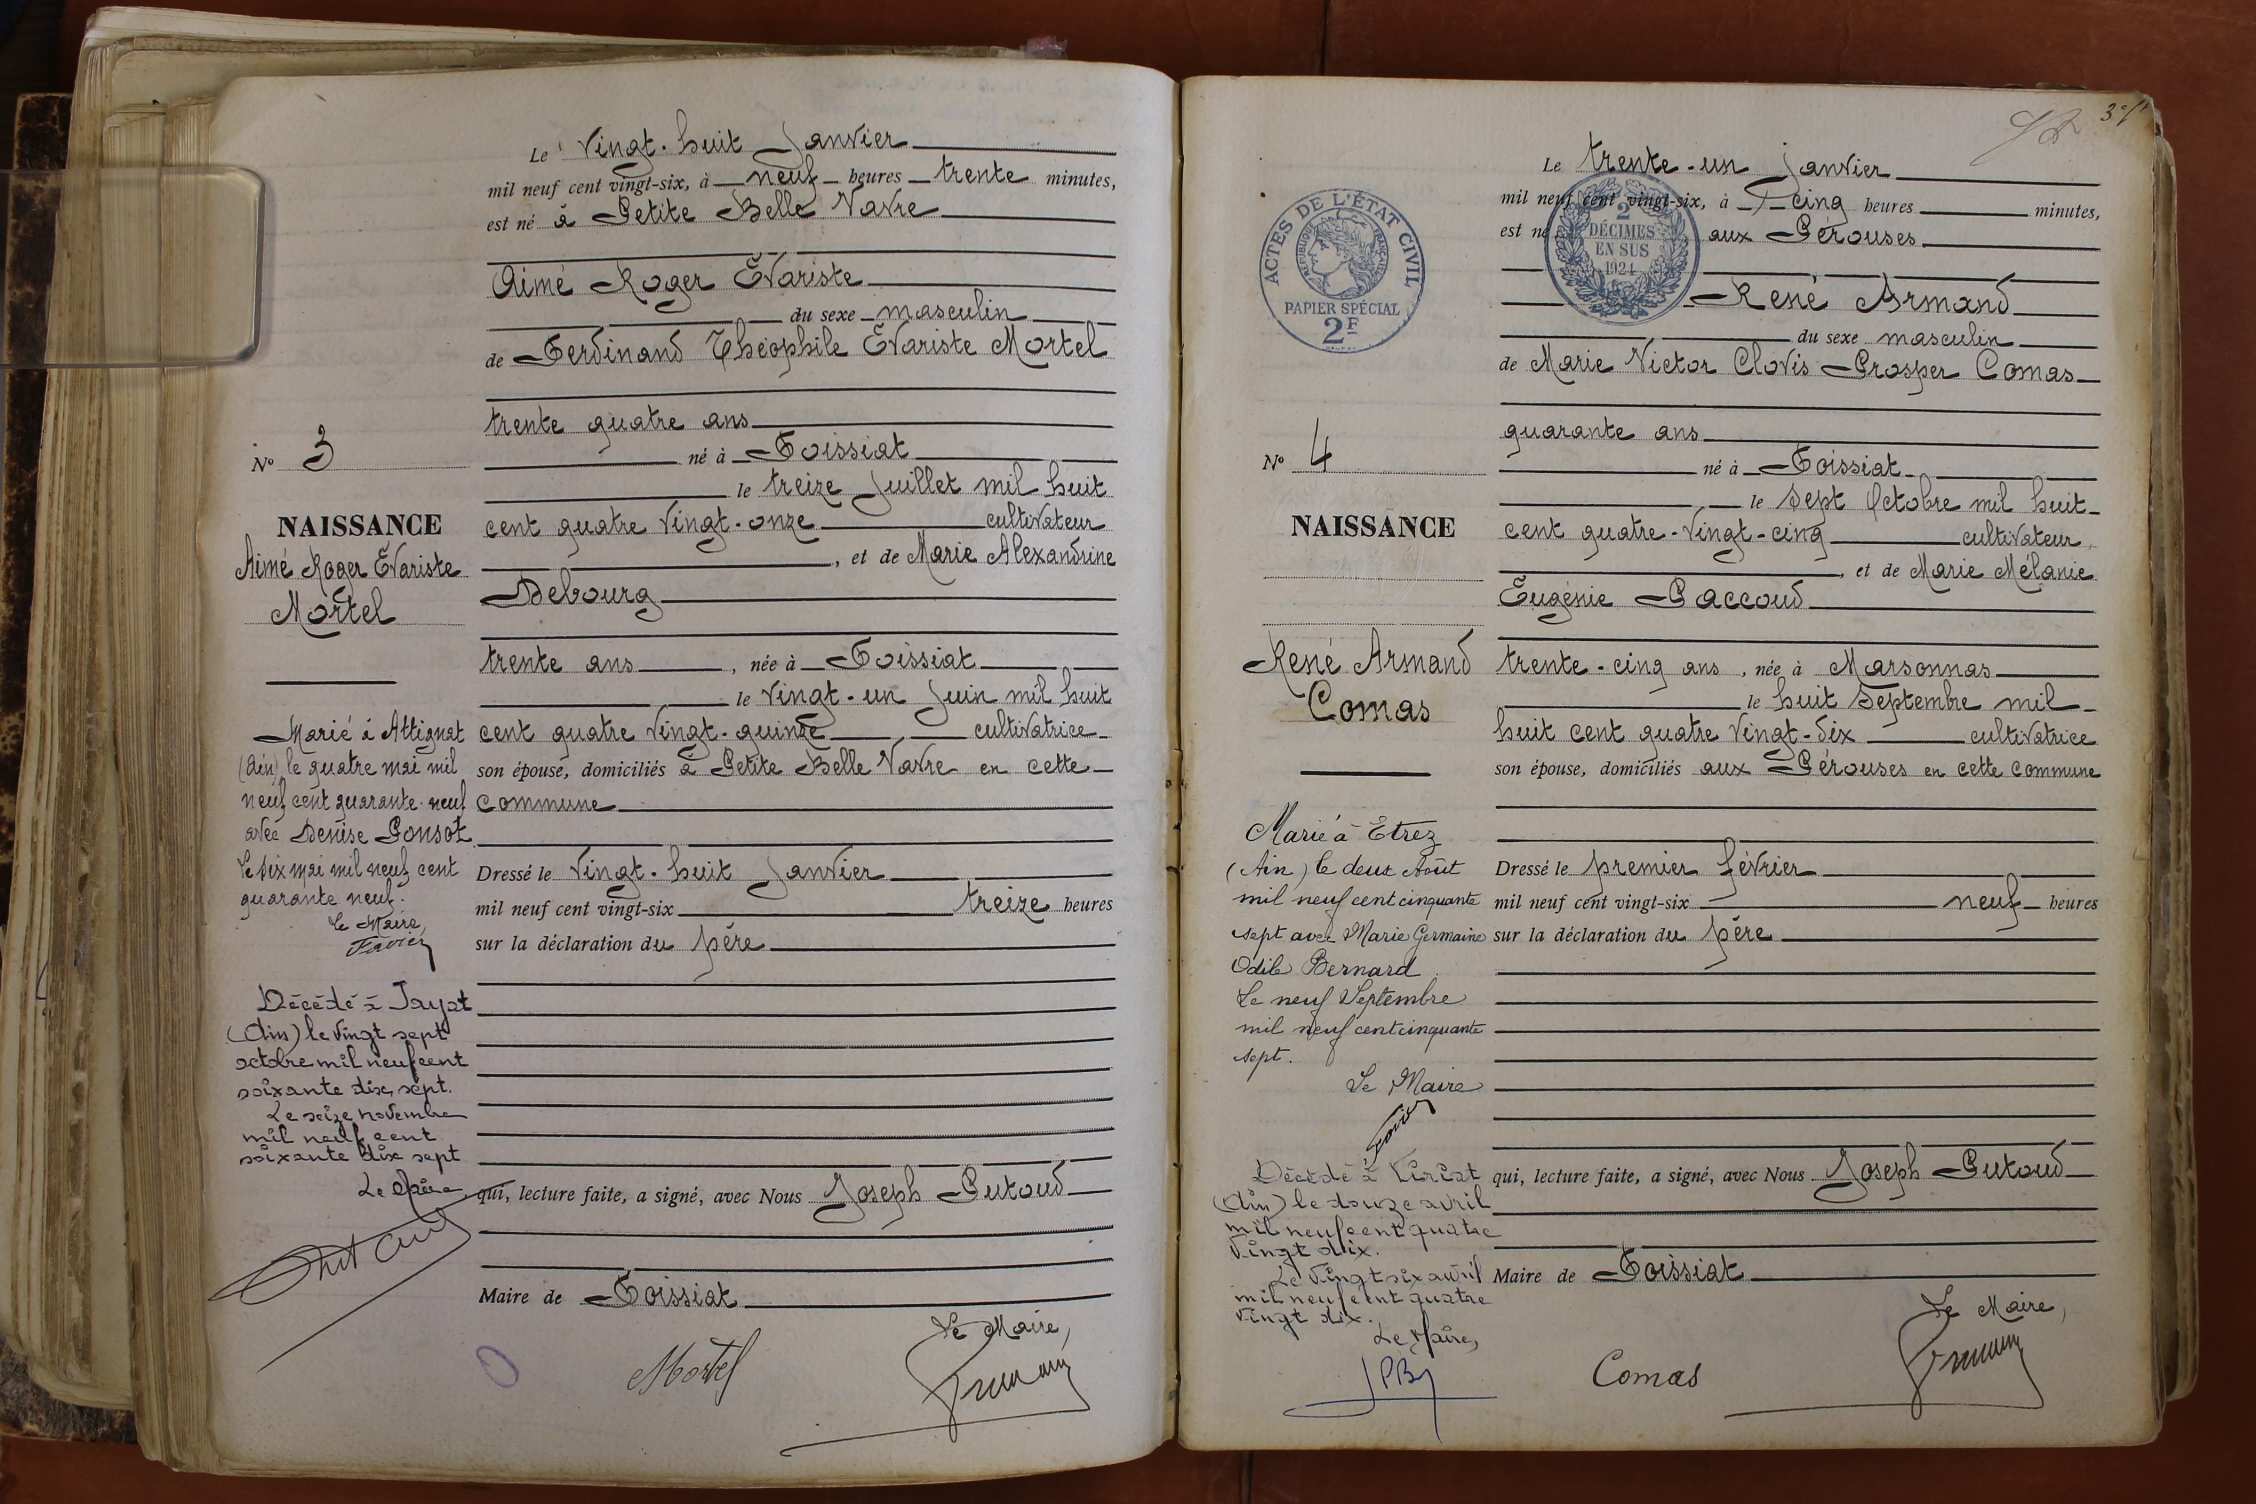 Le vingt-huit Janvier
mil neuf cent vingt-six, à neuf heures trente minutes,
est né à Petite Belle Vavre
Aimé Roger Évariste
du sexe masculin
de Ferdinand Théophile Évariste Mortel
trente quatre ans
né à Foissiat
le treize Juillet mil huit
cent quatre vingt-onze cultivateur
, et de Marie Alexandrine
Debourg
trente ans , née à Foissiat
le vingt-un Juin mil huit
cent quatre vingt-quinze cultivatrice
son épouse, domiciliés à Petite Belle Vavre en cette
commune
Dressé le vingt-huit Janvier
mil neuf cent vingt-six treize heures
sur la déclaration du père
qui, lecture faite, a signé, avec Nous Joseph Putoud
Maire de Foissiat
Le Maire,
Mortel
N° 3
NAISSANCE
Aimé Roger Évariste
Mortel
Marié à Attignat
(Ain) le quatre mai mil
neuf cent quarante-neuf
avec Denise Gonsot
Le dix mai mil neuf cent
quarante neuf.
Le Maire,
Favier
Décédé à Jayat
(Ain) le vingt sept
octobre mil neuf cent
soixante dix sept.
Le seize novembre
mil neuf cent
soixante dix sept
Le Maire
3
Le trente-un janvier
mil neuf cent vingt-six, à cinq heures minutes,
est né aux Pérouses
René Armand
du sexe masculin
de Marie Victor Clovis Prosper Comas
quarante ans
né à Foissiat
le sept Octobre mil huit
cent quatre-vingt-cinq cultivateur
, et de Marie Mélanie
Eugénie Paccoud
trente-cinq ans , née à Marsonnas
le huit Septembre mil
huit cent quatre vingt-dix cultivatrice
son épouse, domiciliés aux Pérouses en cette commune
Dressé le premier février
mil neuf cent vingt-six neuf heures
sur la déclaration du père
qui, lecture faite, a signé, avec Nous Joseph Putoud
Maire de Foissiat
Le Maire,
Comas
ACTES DE L'ÉTAT CIVIL
RÉPUBLIQUE FRANÇAISE
PAPIER SPÉCIAL
2F
2
DÉCIMES
EN SUS
1924
N° 4
NAISSANCE
René Armand
Comas
Marié à Etrez
(Ain) le deux Août
mil neuf cent cinquante
sept avec Marie Germaine
Odile Bernard
Le neuf Septembre
mil neuf cent cinquante
sept.
Le Maire
Favier
Décédé à Viriat
(Ain) le douze avril
mil neuf cent quatre
vingt dix.
Le vingt six avril
mil neuf cent quatre
vingt dix.
Le Maire,